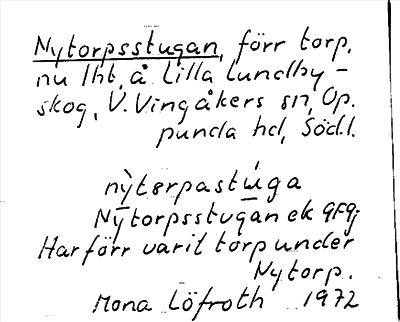 Nytorpsstugan, förr torp,
nu lht, å Lilla Lundby-
skog, V. Vingåkers sn, Op-
punda hd, Södl.
Nytorpsstugan ek
Har förr varit torp under
Nytorp.
Mona Löfroth 1972